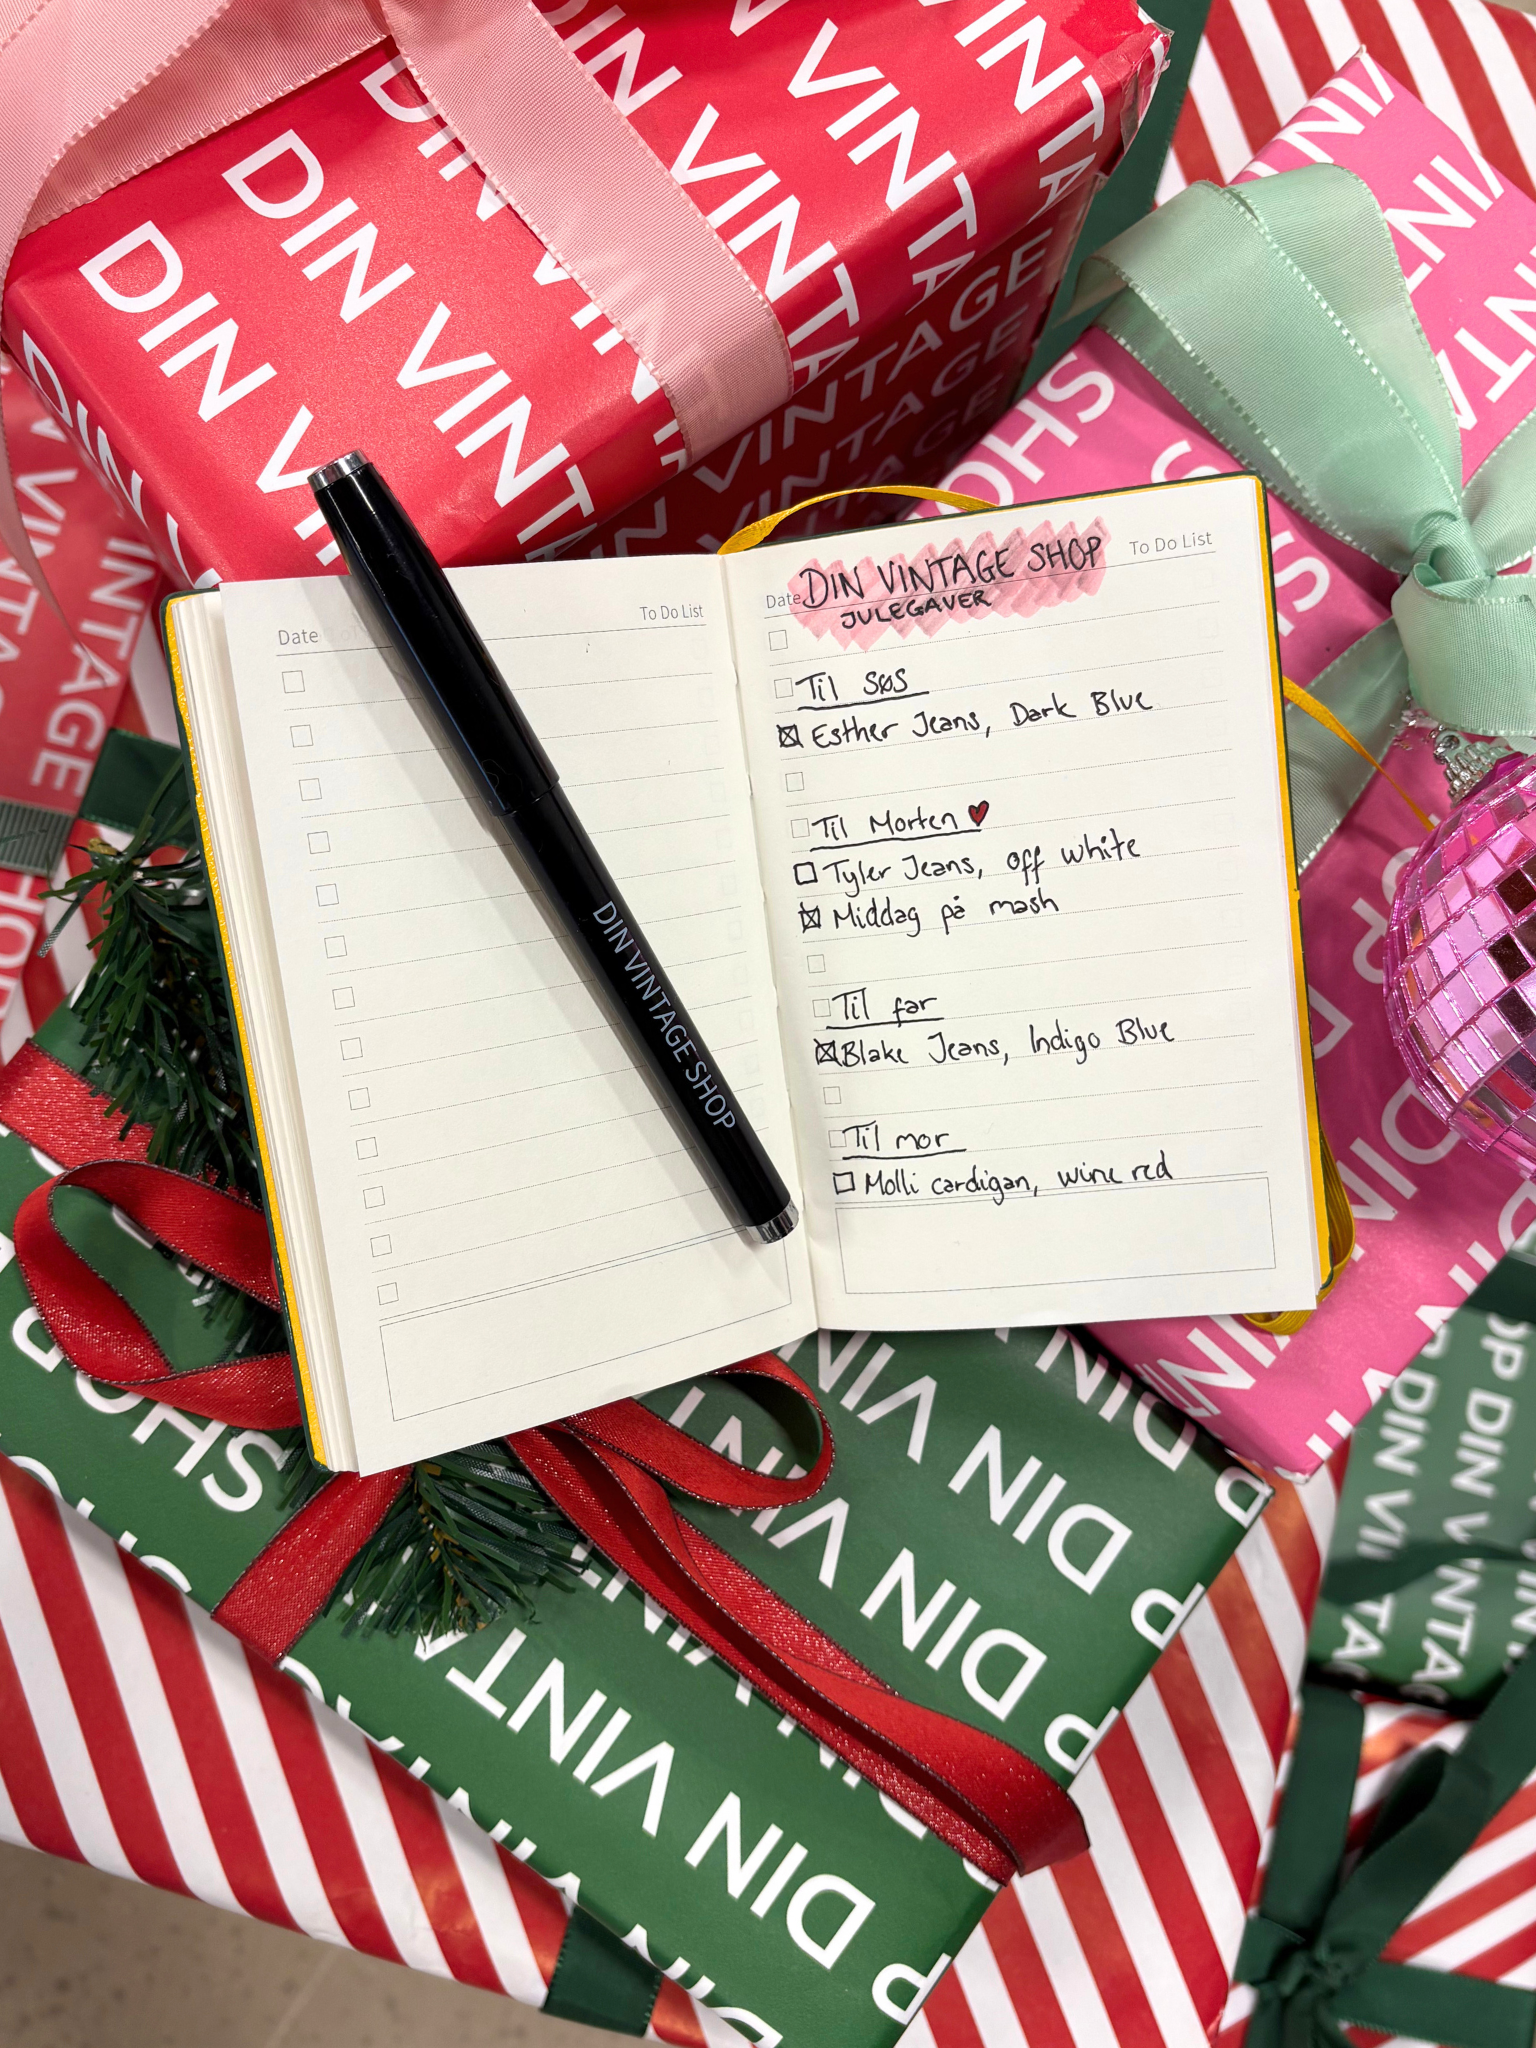 DIN VINTA
DIN VINTA
DIN VINTA
DIN VINTA
DIN VINT
DIN V
VINTAGE
VINTAGE
VINTAGE
VINTAGE
SHOP
Date
To Do List
DIN VINTAGE SHOP
Date
DIN VINTAGE SHOP
To Do List
JULEGAVER
Til søs
Esther Jeans, Dark Blue
Til Morten
Tyler Jeans, off white
Middag på mash
Til far
Blake Jeans, Indigo Blue
Til mor
Molli cardigan, wine red
SHOP
DIN VIN
DIN VINT
DIN VINTA
DIN VI
DIN